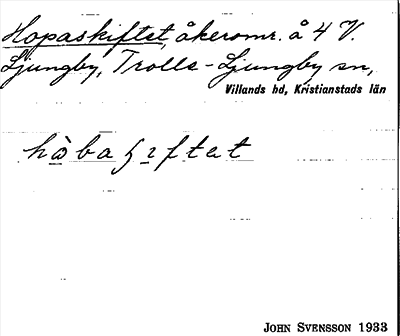 Hopaskiftet, åkeromr. å 4 V.
Ljungby, Trolle-Ljungby sn,
Villands hd, Kristianstads län
JOHN SVENSSON 1933